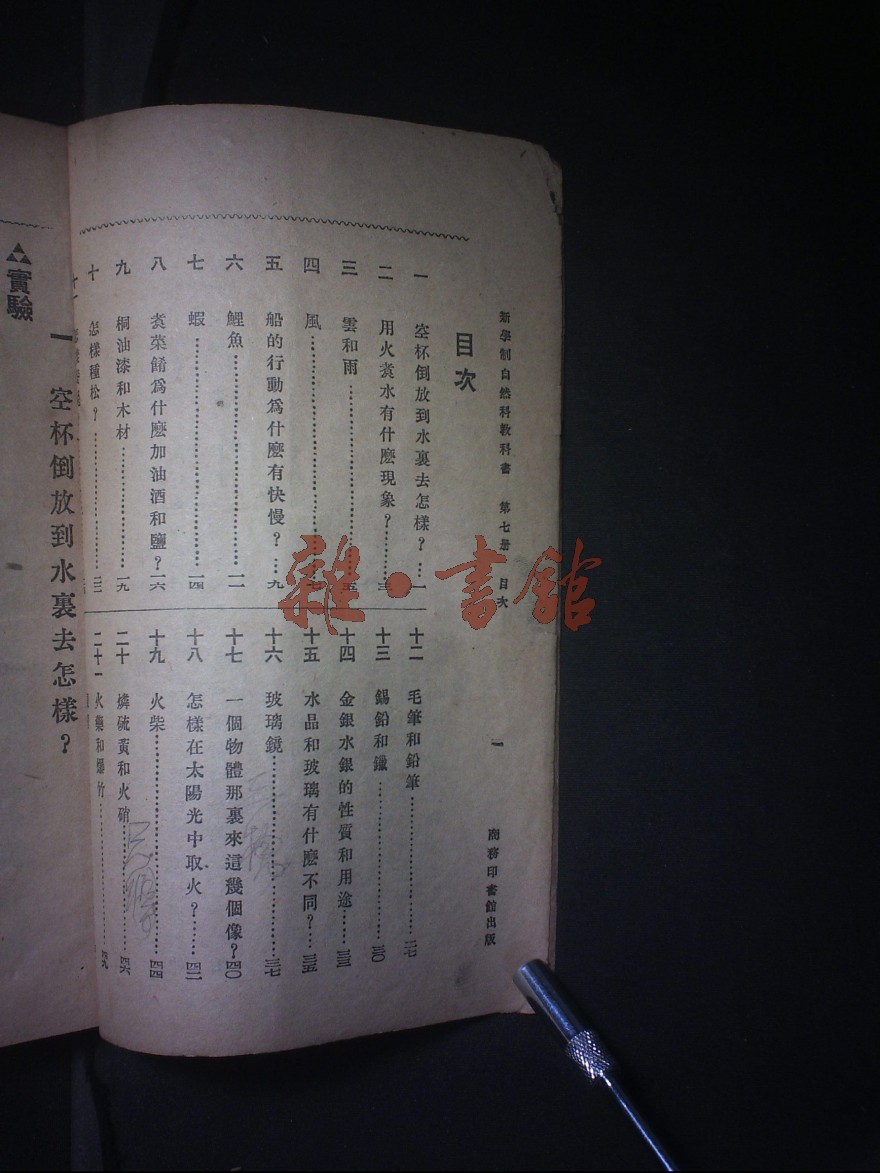 新學制自然科教科書　第七册　目次　一　商務印書館出版
目次
一　空杯倒放到水裏去怎樣？…一
二　用火煑水有什麽現象？………三
三　雲和雨………五
四　風………七
五　船的行動爲什麽有快慢？…九
六　鯉魚………一一
七　蝦………一四
八　煑菜餚爲什麽加油酒和鹽？一六
九　桐油漆和木材………一九
十　怎樣種松？………二二
十一
十二　毛筆和鉛筆………二七
十三　錫鉛和鐵………三〇
十四　金銀水銀的性質和用途……三三
十五　水晶和玻璃有什麽不同？…三五
十六　玻璃鏡………三七
十七　一個物體那裏來這幾個像？四〇
十八　怎樣在太陽光中取火？……四二
十九　火柴………四四
二十　燐硫黃和火硝………四六
二十一　火藥和爆竹………四九
一　空杯倒放到水裏去怎樣？
實驗
雜·書館